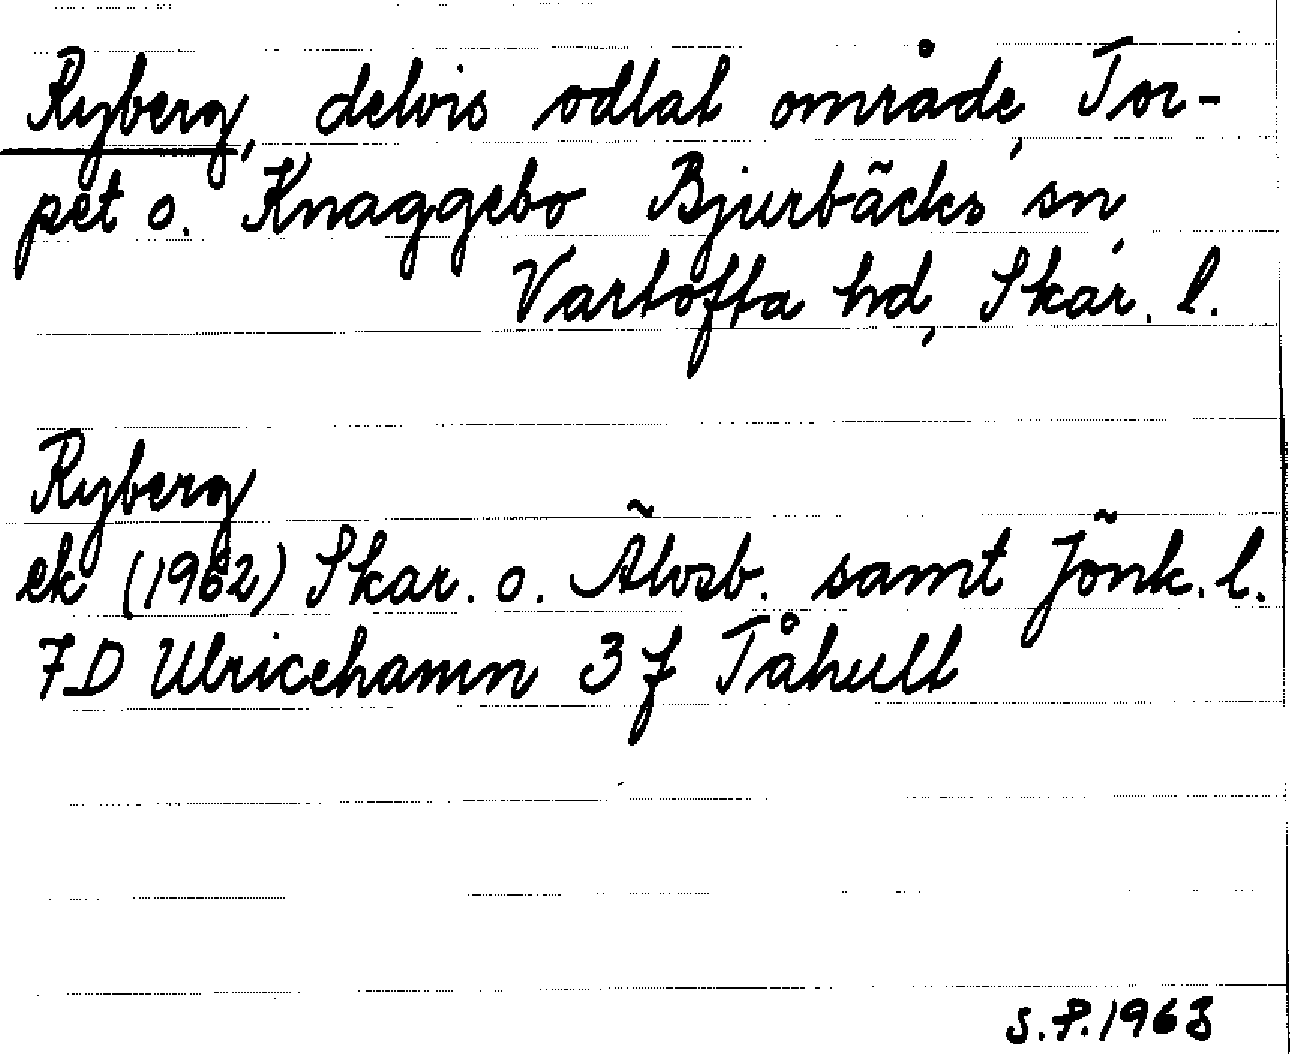 Ryberg, delvis odlat område, Tor-
pet o. Knaggebo Bjurbäcks sn,
Vartofta hd, Skar. l.
Ryberg
ek (1962) Skar. o. Älvsb. samt Jönk. l.
7D Ulricehamn 3f Tåhult
S.P. 1963